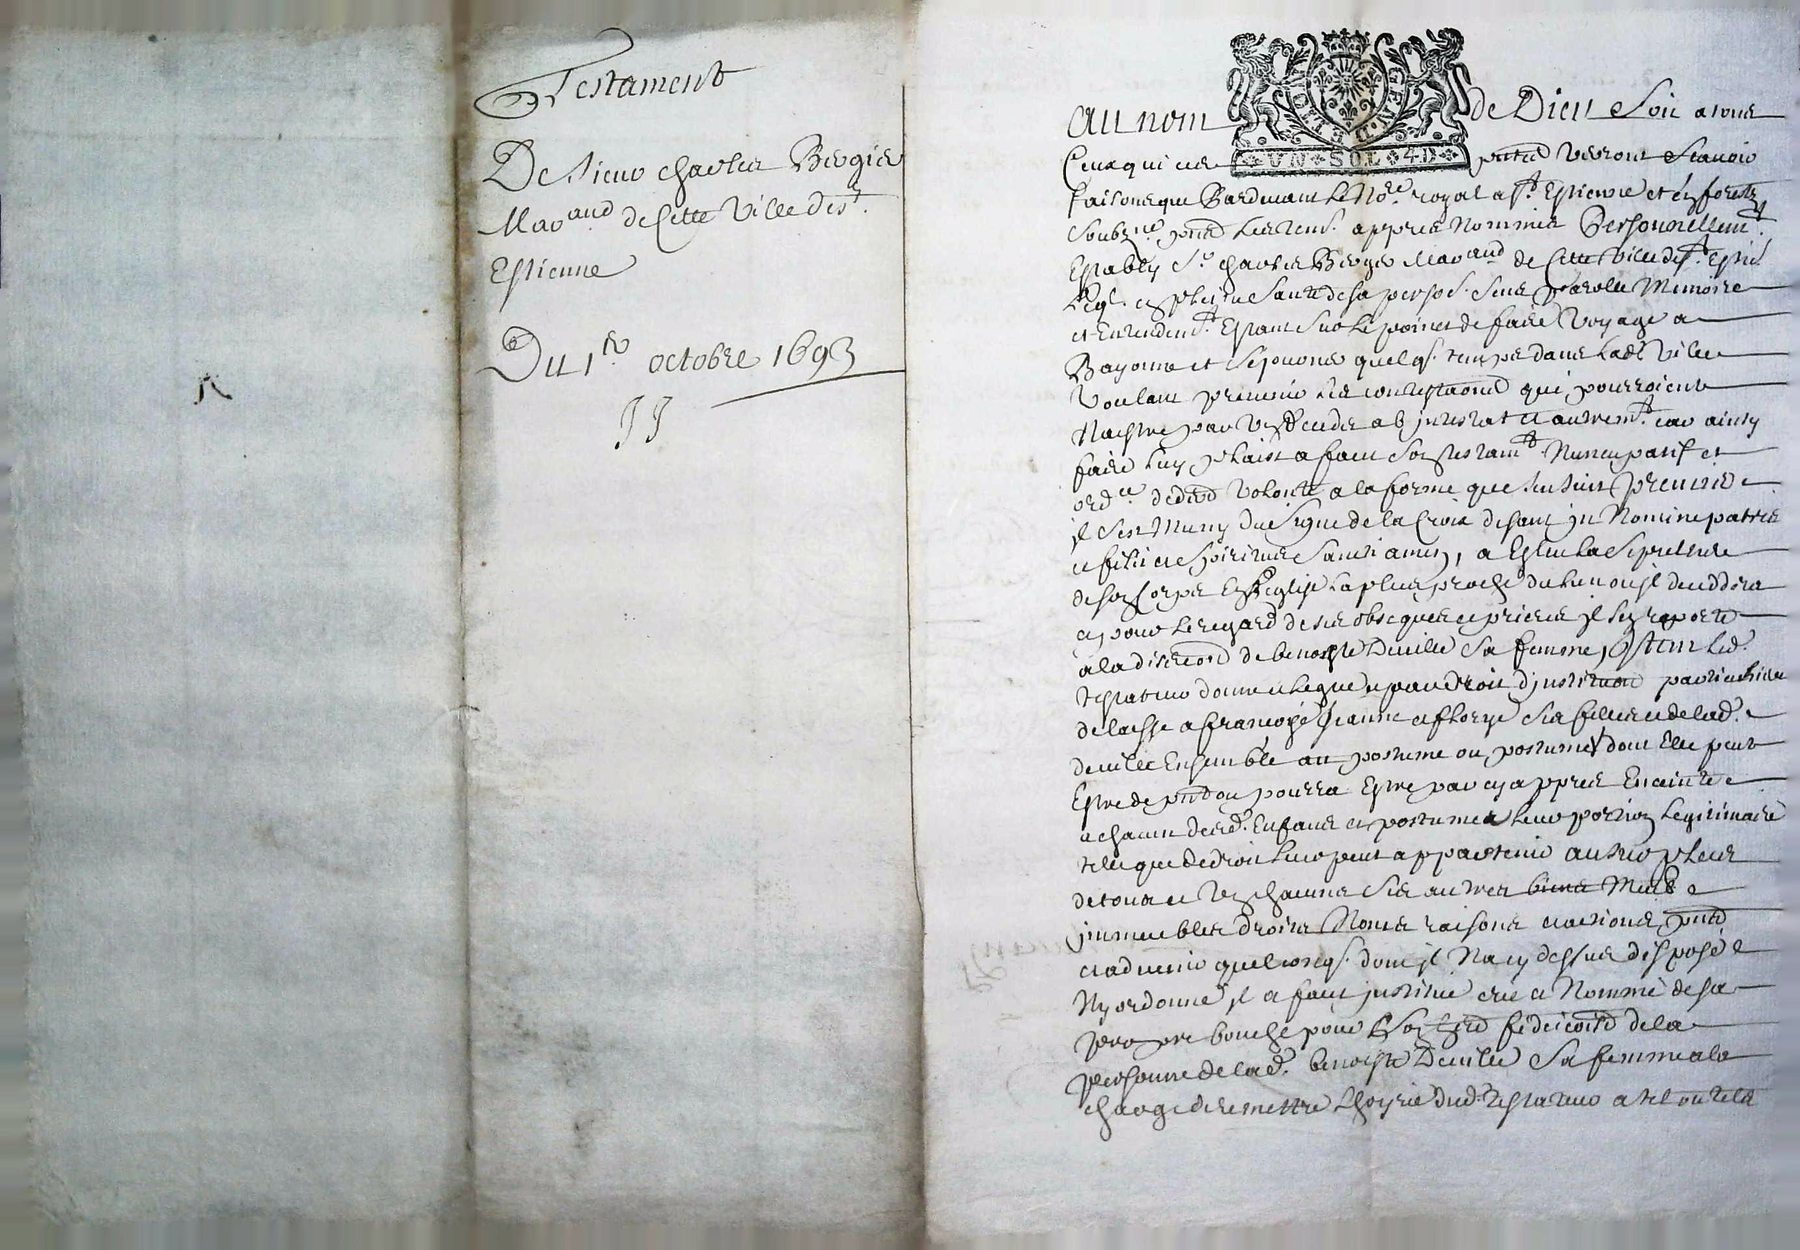 Testament
De Sieur charles Bergier
Mar.and de Cette Ville de st.
Estienne
Du 1er octobre 1693
Au nom de Dieu Soit a tous
Ceux qui ces pntes verront Scauoir
faisons que Pardeuant Le No.re royal a St. Estienne et en forestz
Soubz.né pntz Les tesm. appres Nommes Personnellemt.
Estably Sr. charles Bergier Mar.and de Cette Ville de St. Estie.
Leql. en pleyne Santé de sa perso. Sens parolle Memoire
et Entendemt. Estant Sur Le point de faire Voyage a
Bayonne et Sejourner quelqs. temps dans Lade. Ville
Voulant preuenir Les contestaons qui pourroient
Naistre par deceds ab jntestat et autremt. car ainsy
faire Luy plaist a faict Son testamt. Nuncupatif et
ord.ce de dre Volonté a la forme que Sensuit Premiere
jl Sest Muny du Signe de la Croix disant jn Nomine patris
et filii et Spiritus Sancti amen, a Esleu La Sepulture
de son Corps En Leglise La plus proche du Lieu ou jl deceddera
et pour Le regard de ses obseques et prieres jl Sen raporte
a la discreon de benoiste Deuille Sa femme, jttem Led.
testateur donne et Legue et par droit djnstituon particuliere
delaisse a francoise Jeanne et florye Ses filles et de lad.
deuille Ensemble au postume ou postumes dont Elle peut
Estre de pnt ou pourra Estre par cy appres Enceinte
a chacun desd. Enfans et postumes Leur portion Legitimaire
telle que de droit Leur peut appartenir au surplus
de tous et Vn chacuns Ses autres biens Meub.
jmmeubles droitz Noms raisons et actions pntz
et aduenir quelconqs. dont jl Na cy dessus disposé
Ny ordonné jl a faict jnstitué cree et Nommé de sa
propre bouche pour Son her fideicom de la
personne de lad. benoiste Deuille Sa femme a la
charge de remettre Lhoyrie dud. testateur a tel ou telz
UN SOL 4D